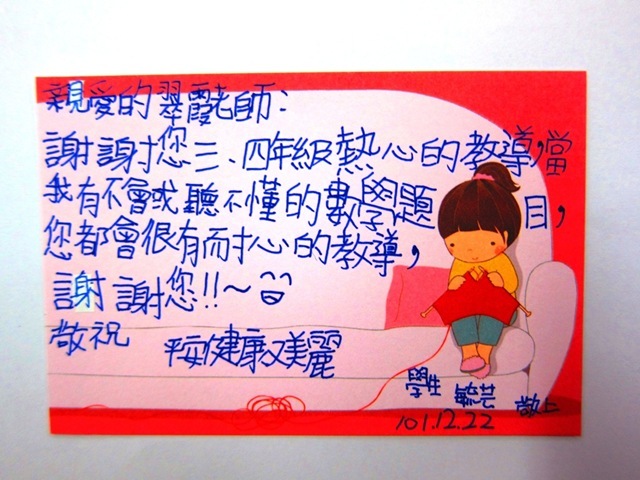 親愛的翠霞老師:
謝謝您三、四年級熱心的教導,當
我有不會或聽不懂的數學題目,
您都會很有耐心的教導,
謝謝您!!~
敬祝
平安健康又美麗
學生 毓芸 敬上
101.12.22